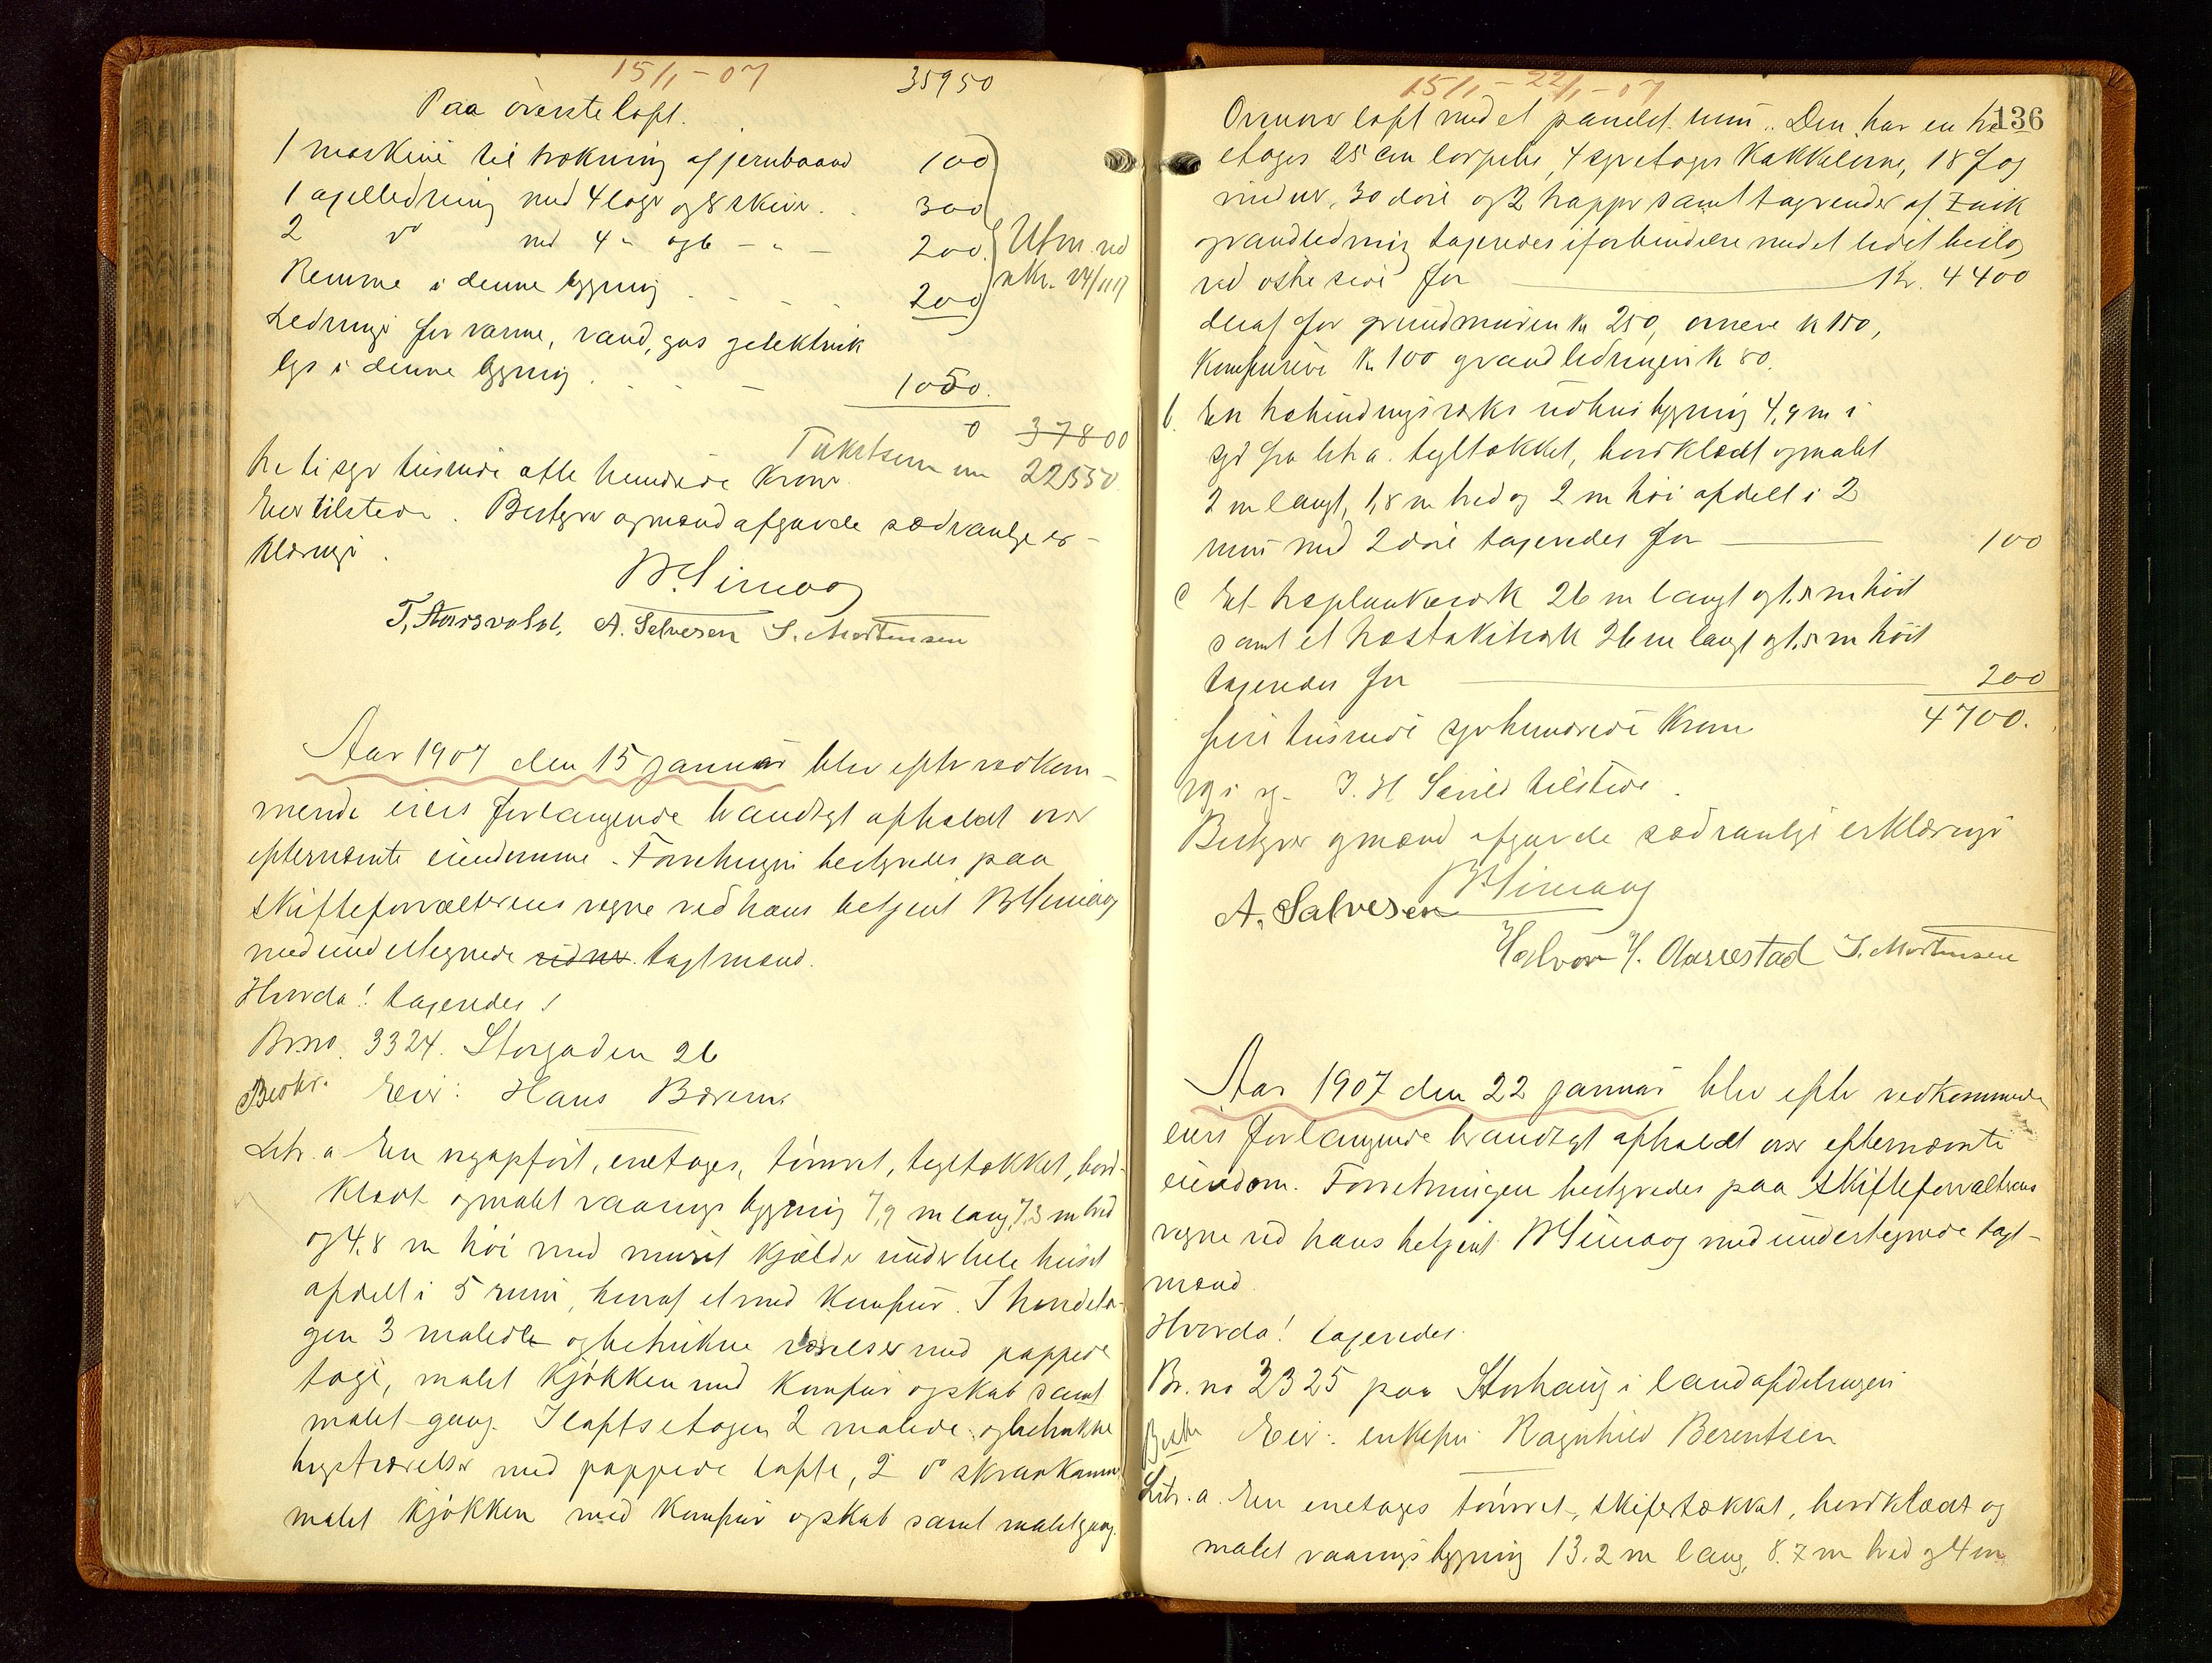 15/1-07
35950
Paa øverste loft.
1 maskine til trækning af jernbaand 100
1 axelledning med 4 lager og 8 skiver . . 300
2 do med 4 " og 6 - " - 200
Remme i denne bygning . . . . 200
Utm. ved
skr. 24/1 17
Ledninger for varme, vand, gas og elektrisk
lys i denne bygning . . . 1050.
0 37800
Takstsum nu 22550
tretti syv tusinde otte hundrede Kroner
Eier tilstede. Bestyrer og mænd afgavde sædvanlige er-
klæringer.
T. Aarsvold, A. Salvesen S. Mortensen
Aar 1907 den 15 januar blev efter vedkom-
mende eiers forlangende brandtagst afholdt over
efternævnte eiendomme. Forretningen bestyredes paa
skifteforvalterens vegne ved hans betjent
med undertegnede tagstmænd.
Hvorda! taxeredes!
Br.no. 3324. Storgaden 26
Eier: Hans
Litr. a En nyopført, enetages, tømret, tegltækket, bord-
klædt og malet vaanings bygning 7,9 m lang, 7,3 m bred
og 4,8 m høi med muret kjælder under hele huset
afdelt i 5 rum, hvoraf et med komfur. I hovedeta-
gen 3 malede og betrukne værelser med pappede
tage, malet kjøkken med komfur og skab samt
malet gang. I loftsetagen 2 malede og betrukne
kvistværelser med pappede lofte, 2 do skraakammer
malet kjøkken med komfur og skab samt malet gang.
15/1-22/1-07
136
Ovenover loft med et panelet rum. Den har en tre
etages 25 cm lovpibe, 4 syvetages kakkelovne, 18 fag
vinduer, 30 døre og 2 trapper samt tagrender af zink
og vandledning taxeredes i forbindelse med et lidet beslag
ved østre side for Kr. 4400
deraf for grundmuren kr 250, ovnene kr 150,
komfurene kr 100 og vandledningen kr 80.
b. En træbindingsværks udhusbygning 4,9 m i
syd fra litr a. tegltækket, bordklædt og malet
2 m langt, 1,8 m bred og 2 m høi afdelt i 2
rum med 2 døre taxeredes for 100
c Et træplankeværk 26 m langt og 1.5 m høit
samt et træstakitværk 26 m langt og 1.5 m høit
taxeredes for 200
4700.
fire tusinde syvhundrede Kroner
tilstede.
Bestyrer og mænd afgavde sædvanlige erklæringer
A. Salvesen
Halvor H. Aarrestad S. Mortensen
Aar 1907 den 22 januar blev efter vedkommende
eiers forlangende brandtagst afholdt over efternævnte
eiendom. Forretningen bestyredes paa Skifteforvalterens
vegne ved hans betjent med undertegnede tagst-
mænd
Hvorda! taxeredes.
Br. no 2325 paa Storhaug i landafdelingen
Eier: enkefru Ragnhild Berentsen
Litr. a. En enetages tømret, skifertækket, bordklædt og
malet vaanings bygning 13.2 m lang, 8.7 m bred og 4 m